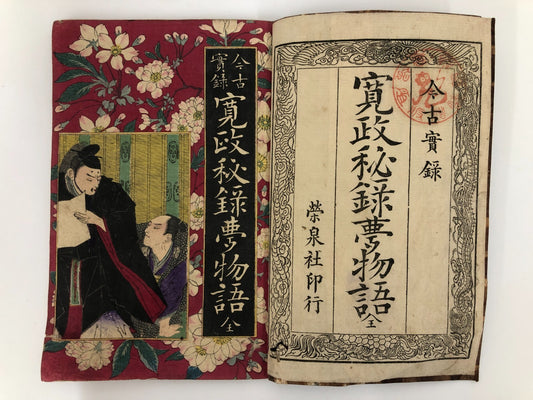 今古
實録
寛政秘録夢物語 全
今古實録
寛政秘録夢物語 全
榮泉社印行